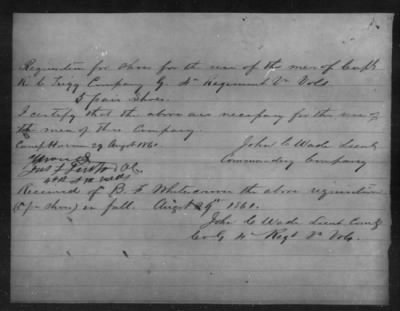 Requisition for shoes for the use of the men of Capt
R. C. Trigg Company G. 4th Regiment Va Vols
5 pair Shoes.
I certify that the above are necessary for the use of
the men of this Company.
Camp 29 Augst 1861 John C Wade Lieut
Commanding Company
Received of B. F. the above requisition
(5 pr shoes) in full. Augst 29th 1861.
John C Wade Lieut Comdg
Co G 4th Regt Va Vols.